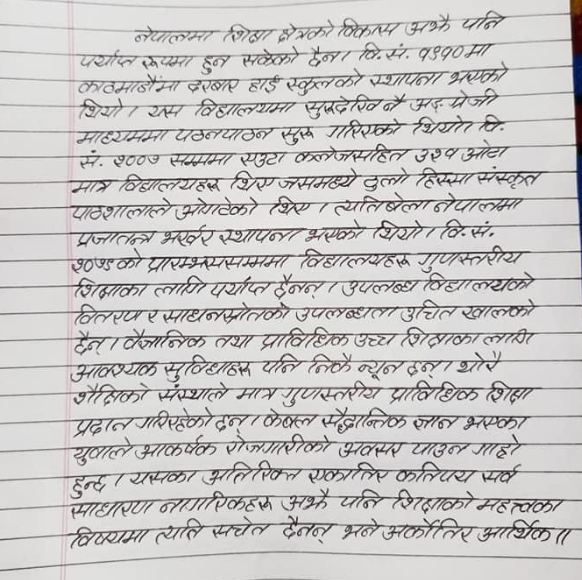 नेपालमा शिक्षा क्षेत्रको विकास अझै पनि
पर्याप्त रूपमा हुन सकेको छैन। वि.सं. १९१० मा
काठमाडौंमा दरबार हाई स्कूलको स्थापना भएको
थियो। यस विद्यालयमा सुरुदेखि नै अङ्ग्रेजी
माध्यममा पठनपाठन सुरु गरिएको थियो। वि.
सं. २००७ सम्ममा एउटा कलेजसहित ३२१ ओटा
मात्र विद्यालयहरू थिए जसमध्ये ठुलो हिस्सा संस्कृत
पाठशालाले ओगटेको थिए। त्यतिबेला नेपालमा
प्रजातन्त्र भर्खर स्थापना भएको थियो। वि.सं.
को प्रारम्भसम्ममा विद्यालयहरू गुणस्तरीय
शिक्षाका लागि पर्याप्त छैनन्। उपलब्ध विद्यालयको
वितरण र साधनस्रोतको उपलब्धता उचित खालको
छैन। वैज्ञानिक तथा प्राविधिक उच्च शिक्षाका लागि
आवश्यक सुविधाहरू पनि निकै न्यून छन्। थोरै
शैक्षिको संस्थाले मात्र गुणस्तरीय प्राविधिक शिक्षा
प्रदान गरिरहेको छन्। केबल सैद्धान्तिक ज्ञान भएका
युवाले आकर्षक रोजगारीको अवसर पाउन गाह्रो
हुन्छ। यसका अतिरिक्त एकातिर कतिपय सर्व
साधारण नागरिकहरू अझै पनि शिक्षाको महत्त्वका
विषयमा त्यति सचेत छैनन् भने अर्कोतिर आर्थिक॥